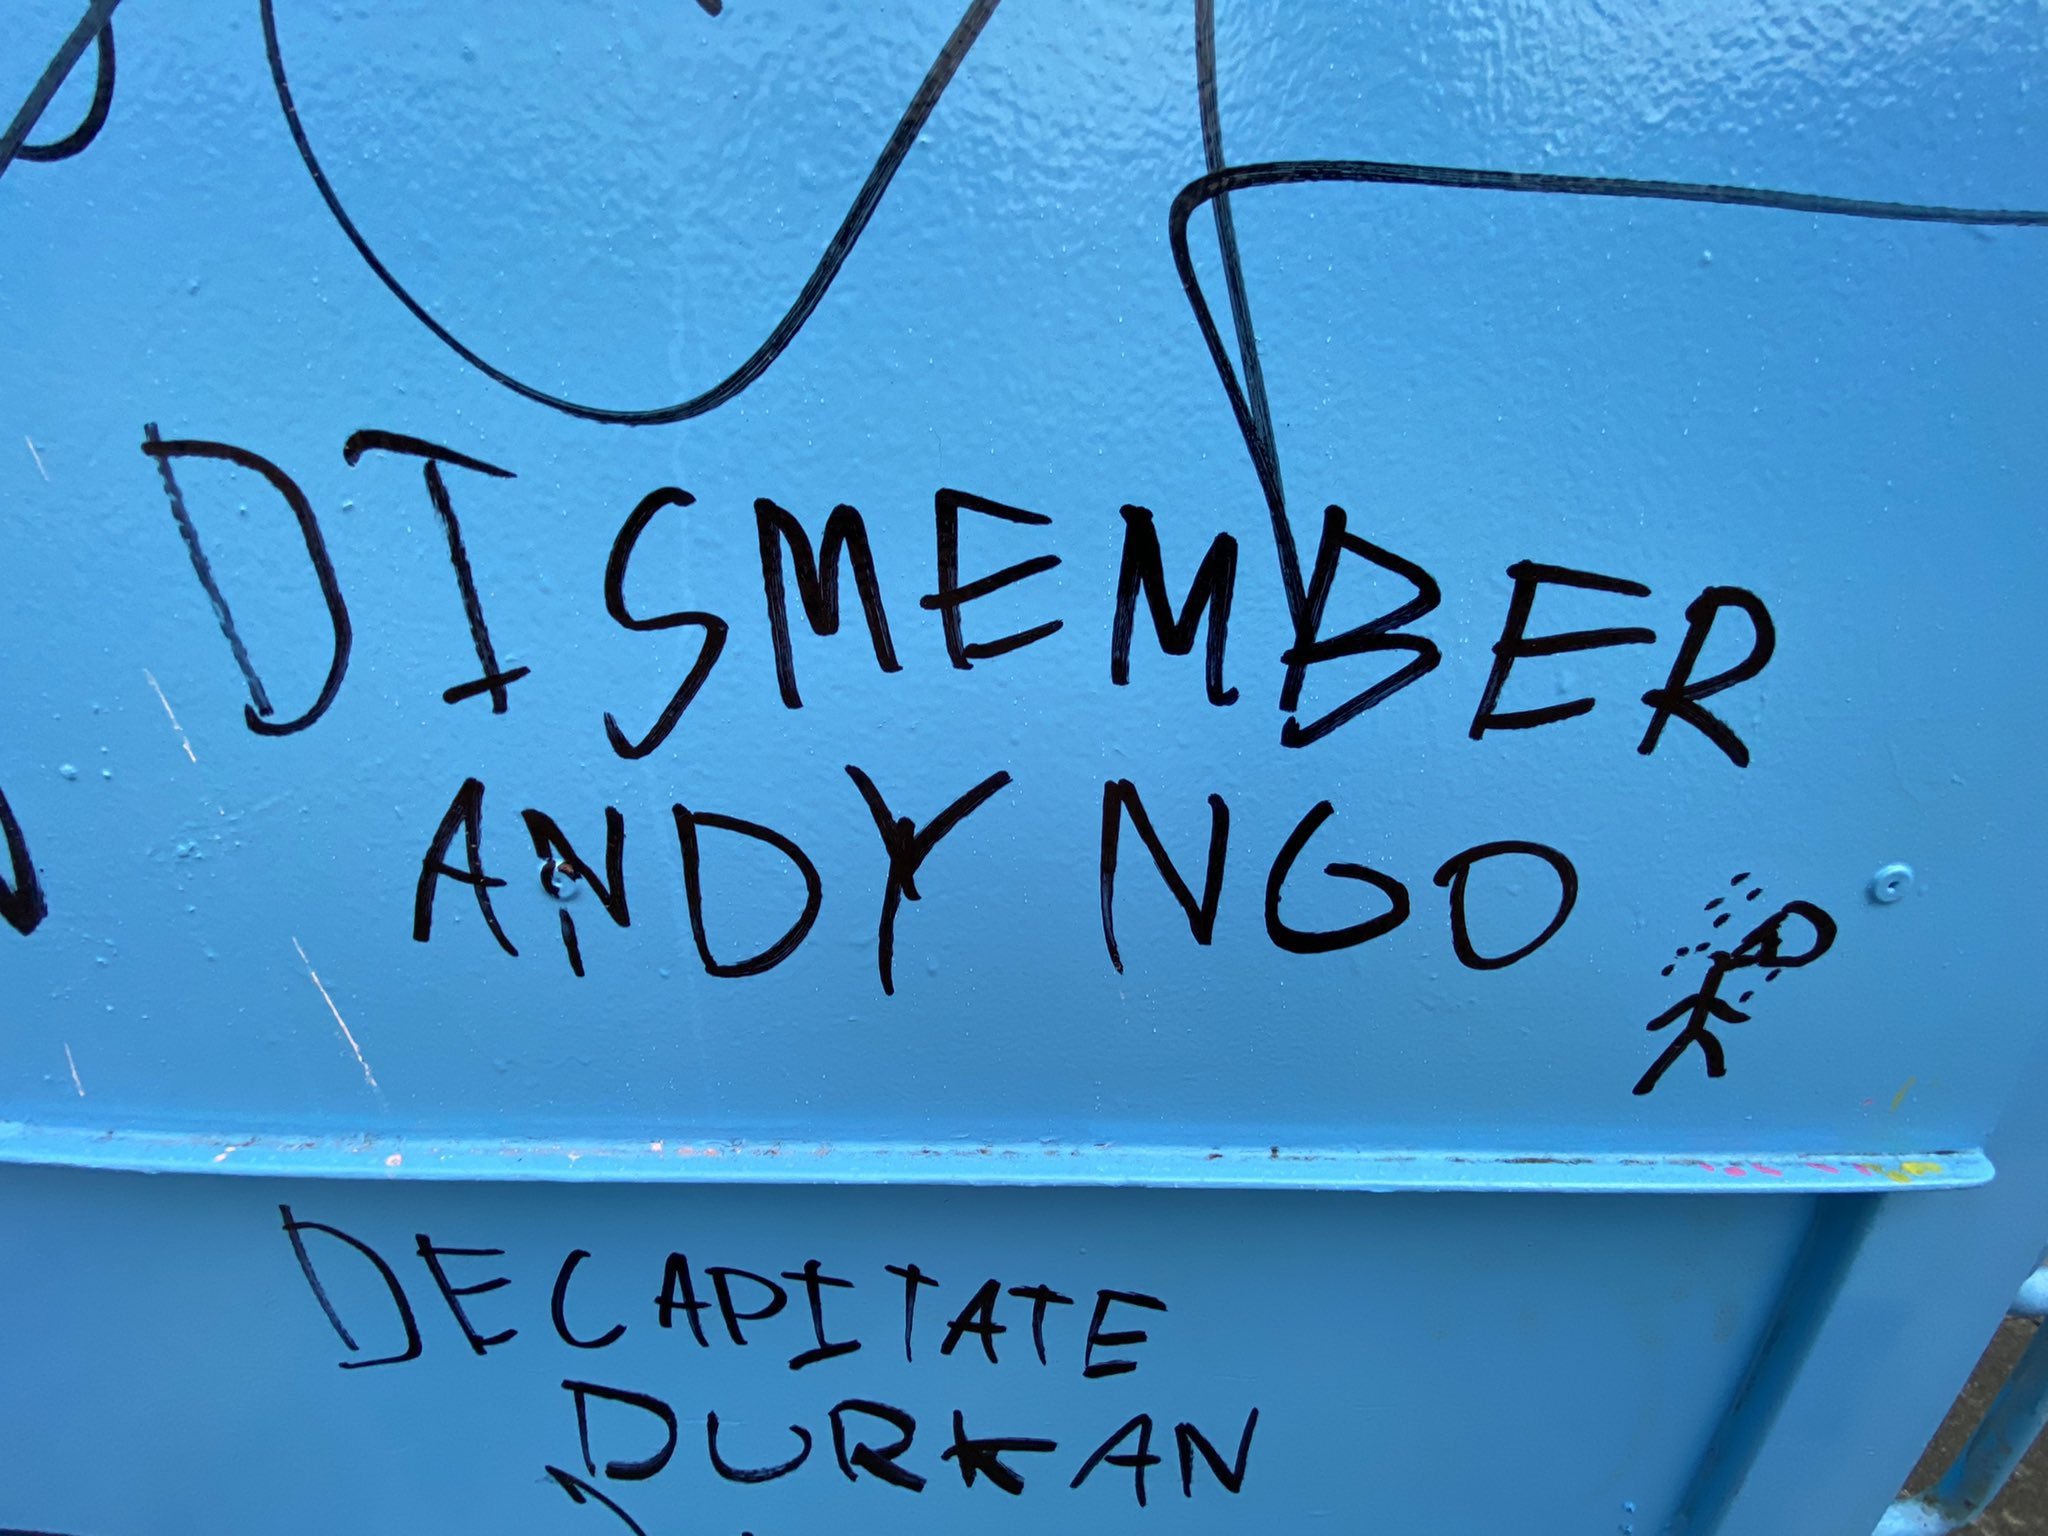 DISMEMBER
ANDY NGO
DECAPITATE
DURKAN